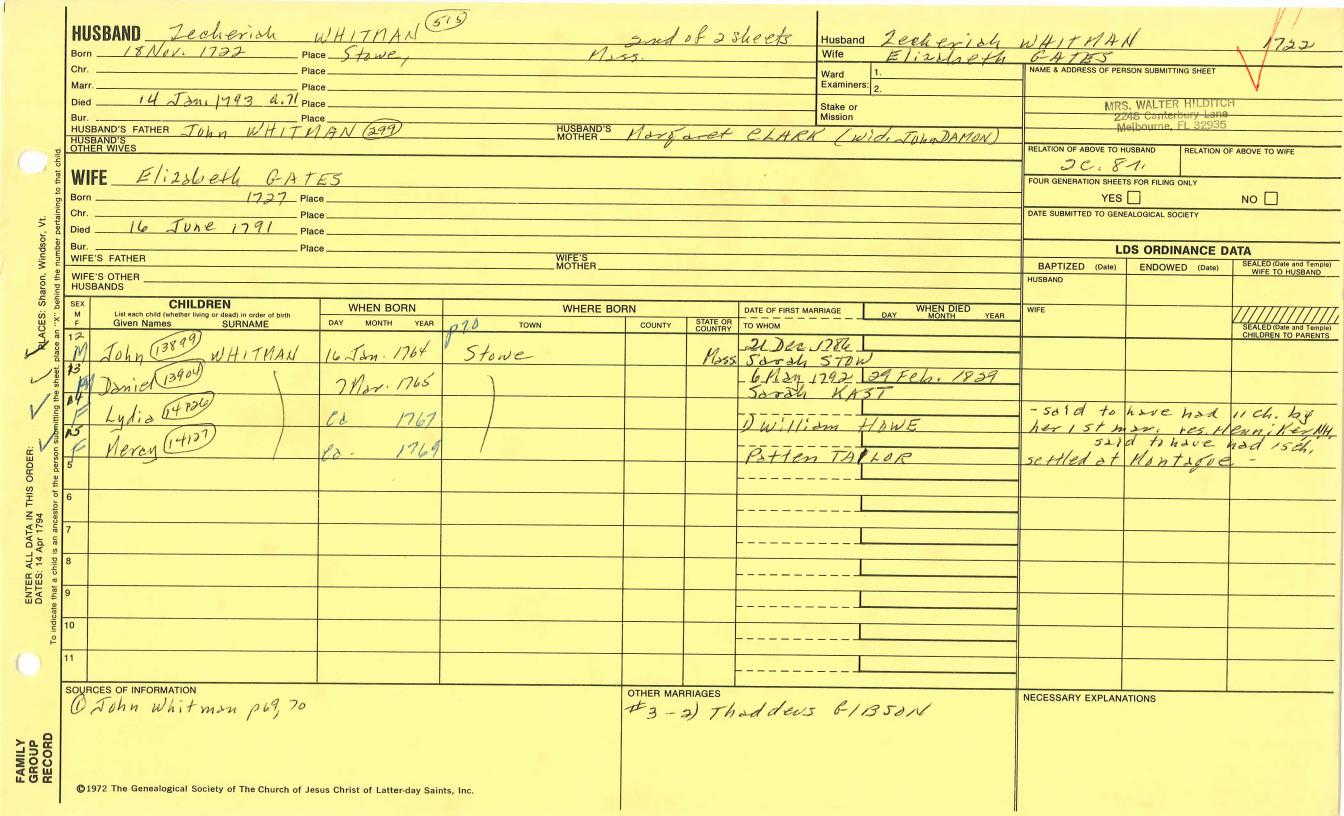 HUSBAND Zecheriah WHITMAN (515) 2nd of 2 sheets
Born 18 Nov. 1722 Place Stowe, Mass.
Chr. Place
Marr. Place
Died 14 Jan. 1793 a.71 Place
Bur. Place
HUSBAND'S FATHER John WHITMAN (299) HUSBAND'S MOTHER Margaret CLARK (wid. John DAMON)
HUSBAND'S OTHER WIVES
Husband Zecheriah WHITMAN 1722
Wife Elizabeth GATES
Ward Examiners: 1.
2.
Stake or Mission
NAME & ADDRESS OF PERSON SUBMITTING SHEET
MRS. WALTER HILDITCH
2246 Canterbury Lane
Melbourne, FL 32935
RELATION OF ABOVE TO HUSBAND RELATION OF ABOVE TO WIFE
2C. 8r.
FOUR GENERATION SHEETS FOR FILING ONLY
YES NO
DATE SUBMITTED TO GENEALOGICAL SOCIETY
WIFE Elizabeth GATES
Born 1727 Place
Chr. Place
Died 16 June 1791 Place
Bur. Place
WIFE'S FATHER WIFE'S MOTHER
WIFE'S OTHER HUSBANDS
LDS ORDINANCE DATA
BAPTIZED (Date) ENDOWED (Date) SEALED (Date and Temple) WIFE TO HUSBAND
HUSBAND
WIFE
SEALED (Date and Temple) CHILDREN TO PARENTS
SEX M F CHILDREN
List each child (whether living or dead) in order of birth
Given Names SURNAME
WHEN BORN
DAY MONTH YEAR
WHERE BORN
p70 TOWN COUNTY STATE OR COUNTRY
DATE OF FIRST MARRIAGE
TO WHOM
WHEN DIED
DAY MONTH YEAR
12 M John (13899) WHITMAN 16 Jan. 1764 Stowe Mass 21 Dec 1786
Sarah STOW
13 M Daniel (13904) 7 Mar. 1765 6 May 1792 29 Feb. 1829
Sarah KAST
14 F Lydia ca 1767 1) William HOWE
- said to have had 11 ch. by
her 1st mar. res. Henniker, NH.
15 F Mercy (14127) ca. 1769 Patten TAYLOR
said to have had 15 ch.
settled at Montague -
5
6
7
8
9
10
11
SOURCES OF INFORMATION
① John Whitman p69, 70
OTHER MARRIAGES
#3 - 2) Thaddeus GIBSON
NECESSARY EXPLANATIONS
©1972 The Genealogical Society of The Church of Jesus Christ of Latter-day Saints, Inc.
FAMILY GROUP RECORD
ENTER ALL DATA IN THIS ORDER:
DATES: 14 Apr 1794
PLACES: Sharon, Windsor, Vt.
To indicate that a child is an ancestor of the person submitting the sheet, place an "X" behind the number pertaining to that child.